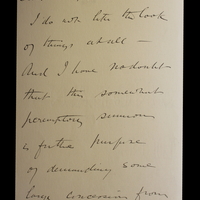 I do not like the look
of things at all –
And I have no doubt
that this somewhat
peremptory summons
is for the purpose
of demanding some
large concession from